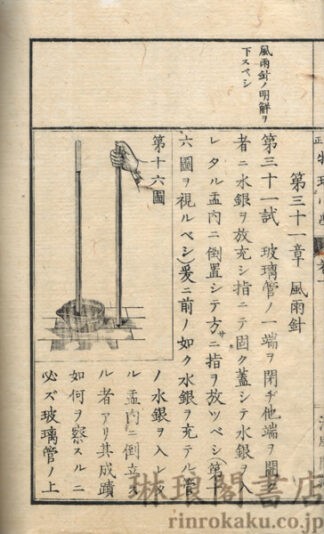 風雨針ノ明解ヲ
下スベシ
第三十一章 風雨針
第三十一試 玻璃管ノ一端ヲ閉ヂ他端ヲ開
者ニ水銀ヲ放充シ指ニテ固ク蓋シテ水銀ヲ入
レタル盂内ニ倒置シテ方サニ指ヲ放ツベシ(第十
六圖ヲ視ルベシ)爰ニ前ノ如ク水銀ヲ充テル管
第十六圖
ノ水銀ヲ入レ
ル盂内ニ倒立ス
ル者アリ其成蹟
如何ヲ察スルニ
必ズ玻璃管ノ上
琳琅閣書店
rinrokaku.co.jp